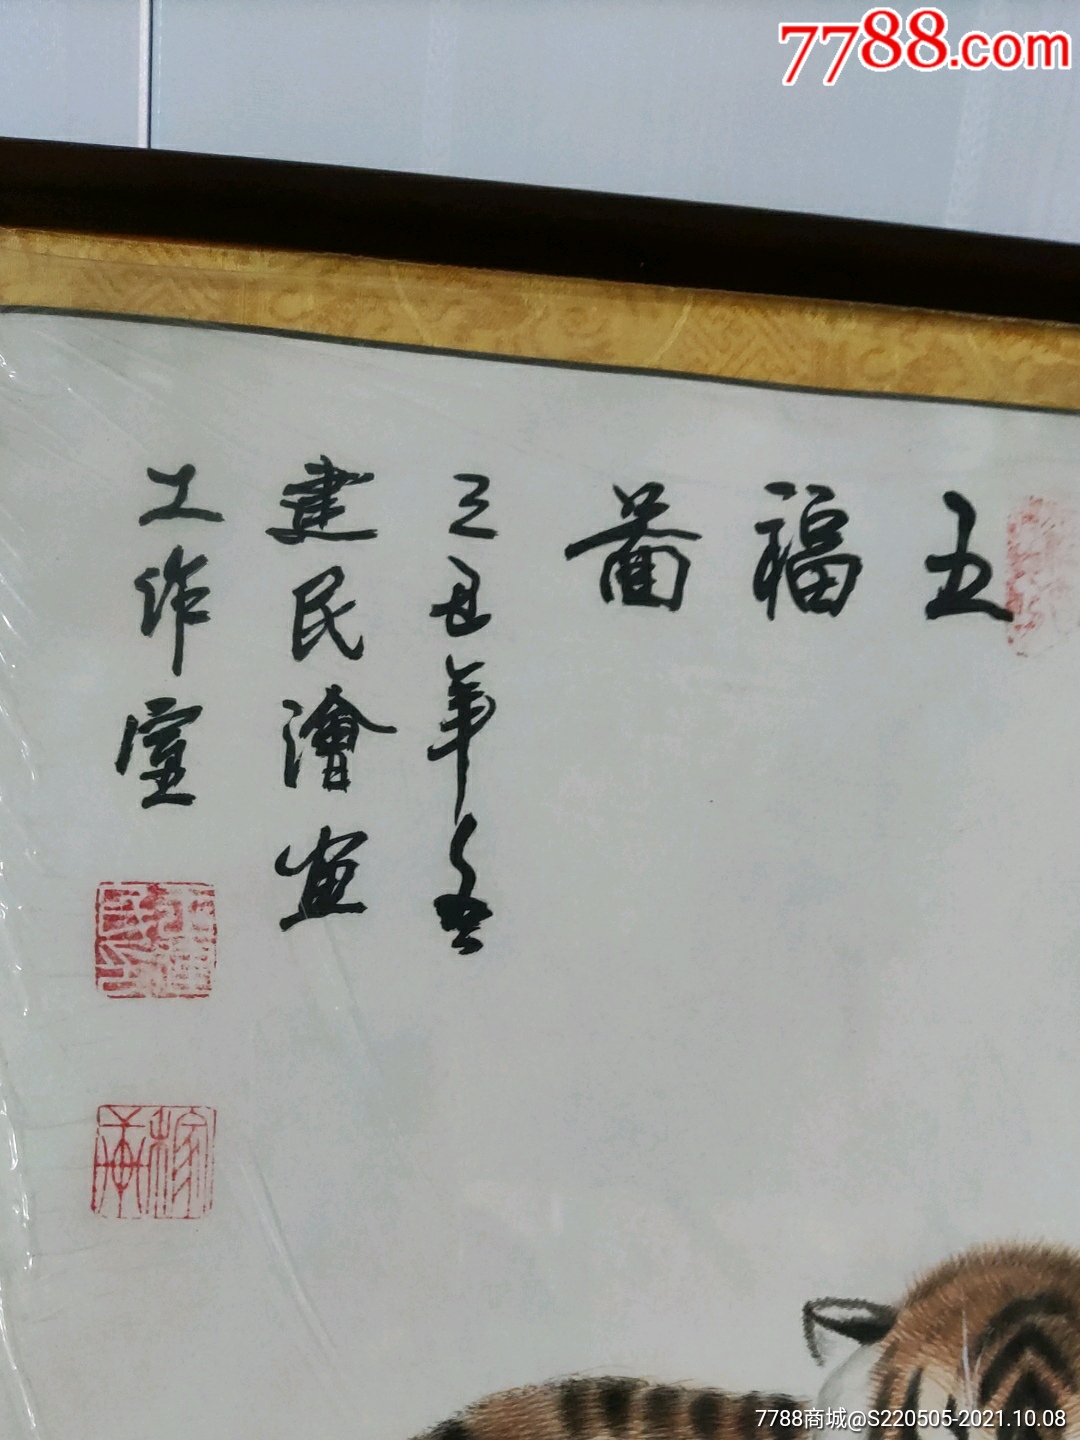 7788.com
五福畐
己丑年冬
建民繪画
工作室
7788商城@S220505-2021.10.08